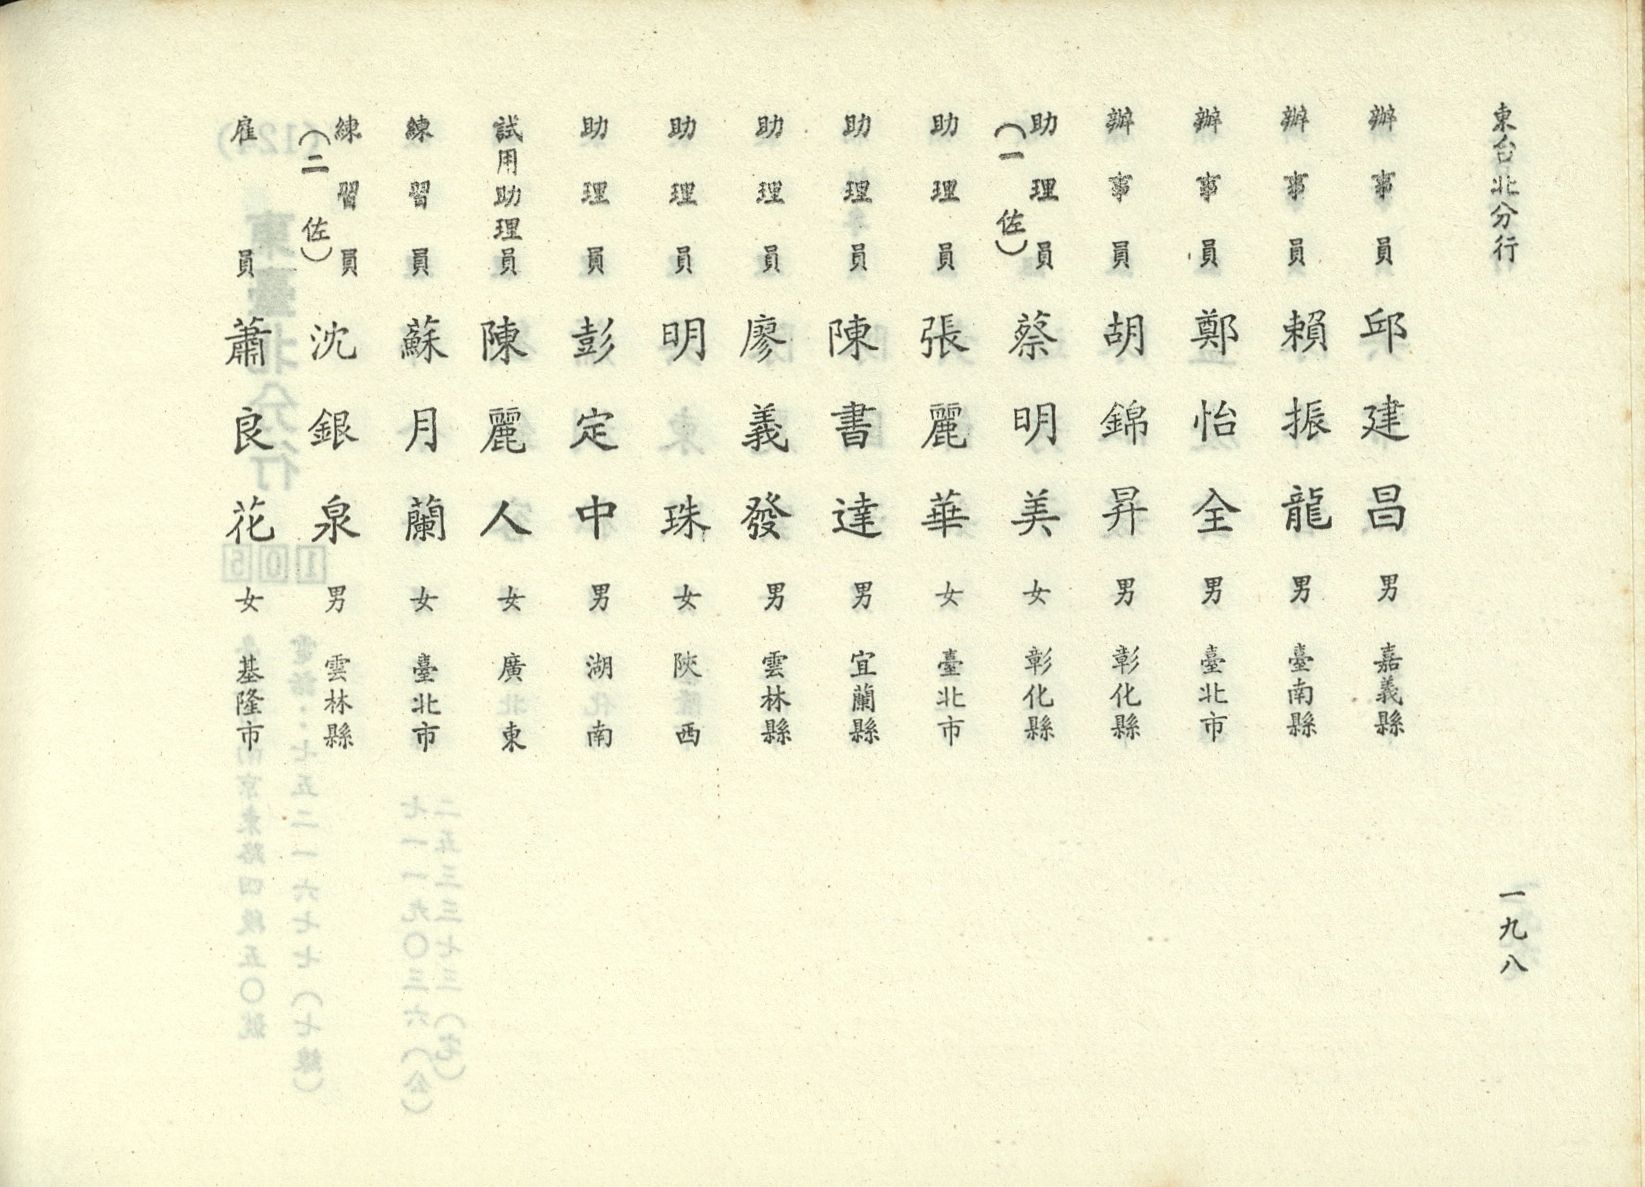 東台北分行
一九八
辦事員 邱建昌 男 嘉義縣
辦事員 賴振龍 男 臺南縣
辦事員 鄭怡全 男 臺北市
辦事員 胡錦昇 男 彰化縣
助理員(一佐) 蔡明美 女 彰化縣
助理員 張麗華 女 臺北市
助理員 陳書達 男 宜蘭縣
助理員 廖義發 男 雲林縣
助理員 明珠 女 陝西
助理員 彭定中 男 湖南
試用助理員 陳麗人 女 廣東
練習員 蘇月蘭 女 臺北市
練習員(二佐) 沈銀泉 男 雲林縣
雇員 蕭良花 女 基隆市